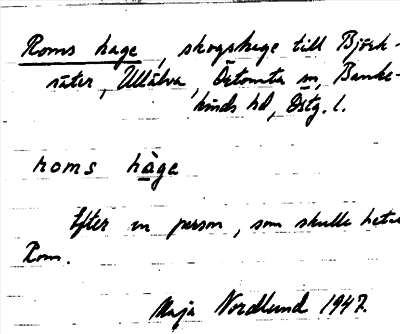 Roms hage, skogshage till Björk-
säter, Ullälva, Östomta sn, Banke-
kinds hd, Östg. l.
roms hàge
Efter en person, som skulle heta
Rom.
Maja Nordlund 1947.